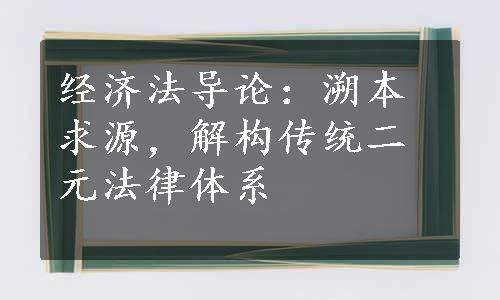 经济法导论：溯本
求源，解构传统二
元法律体系